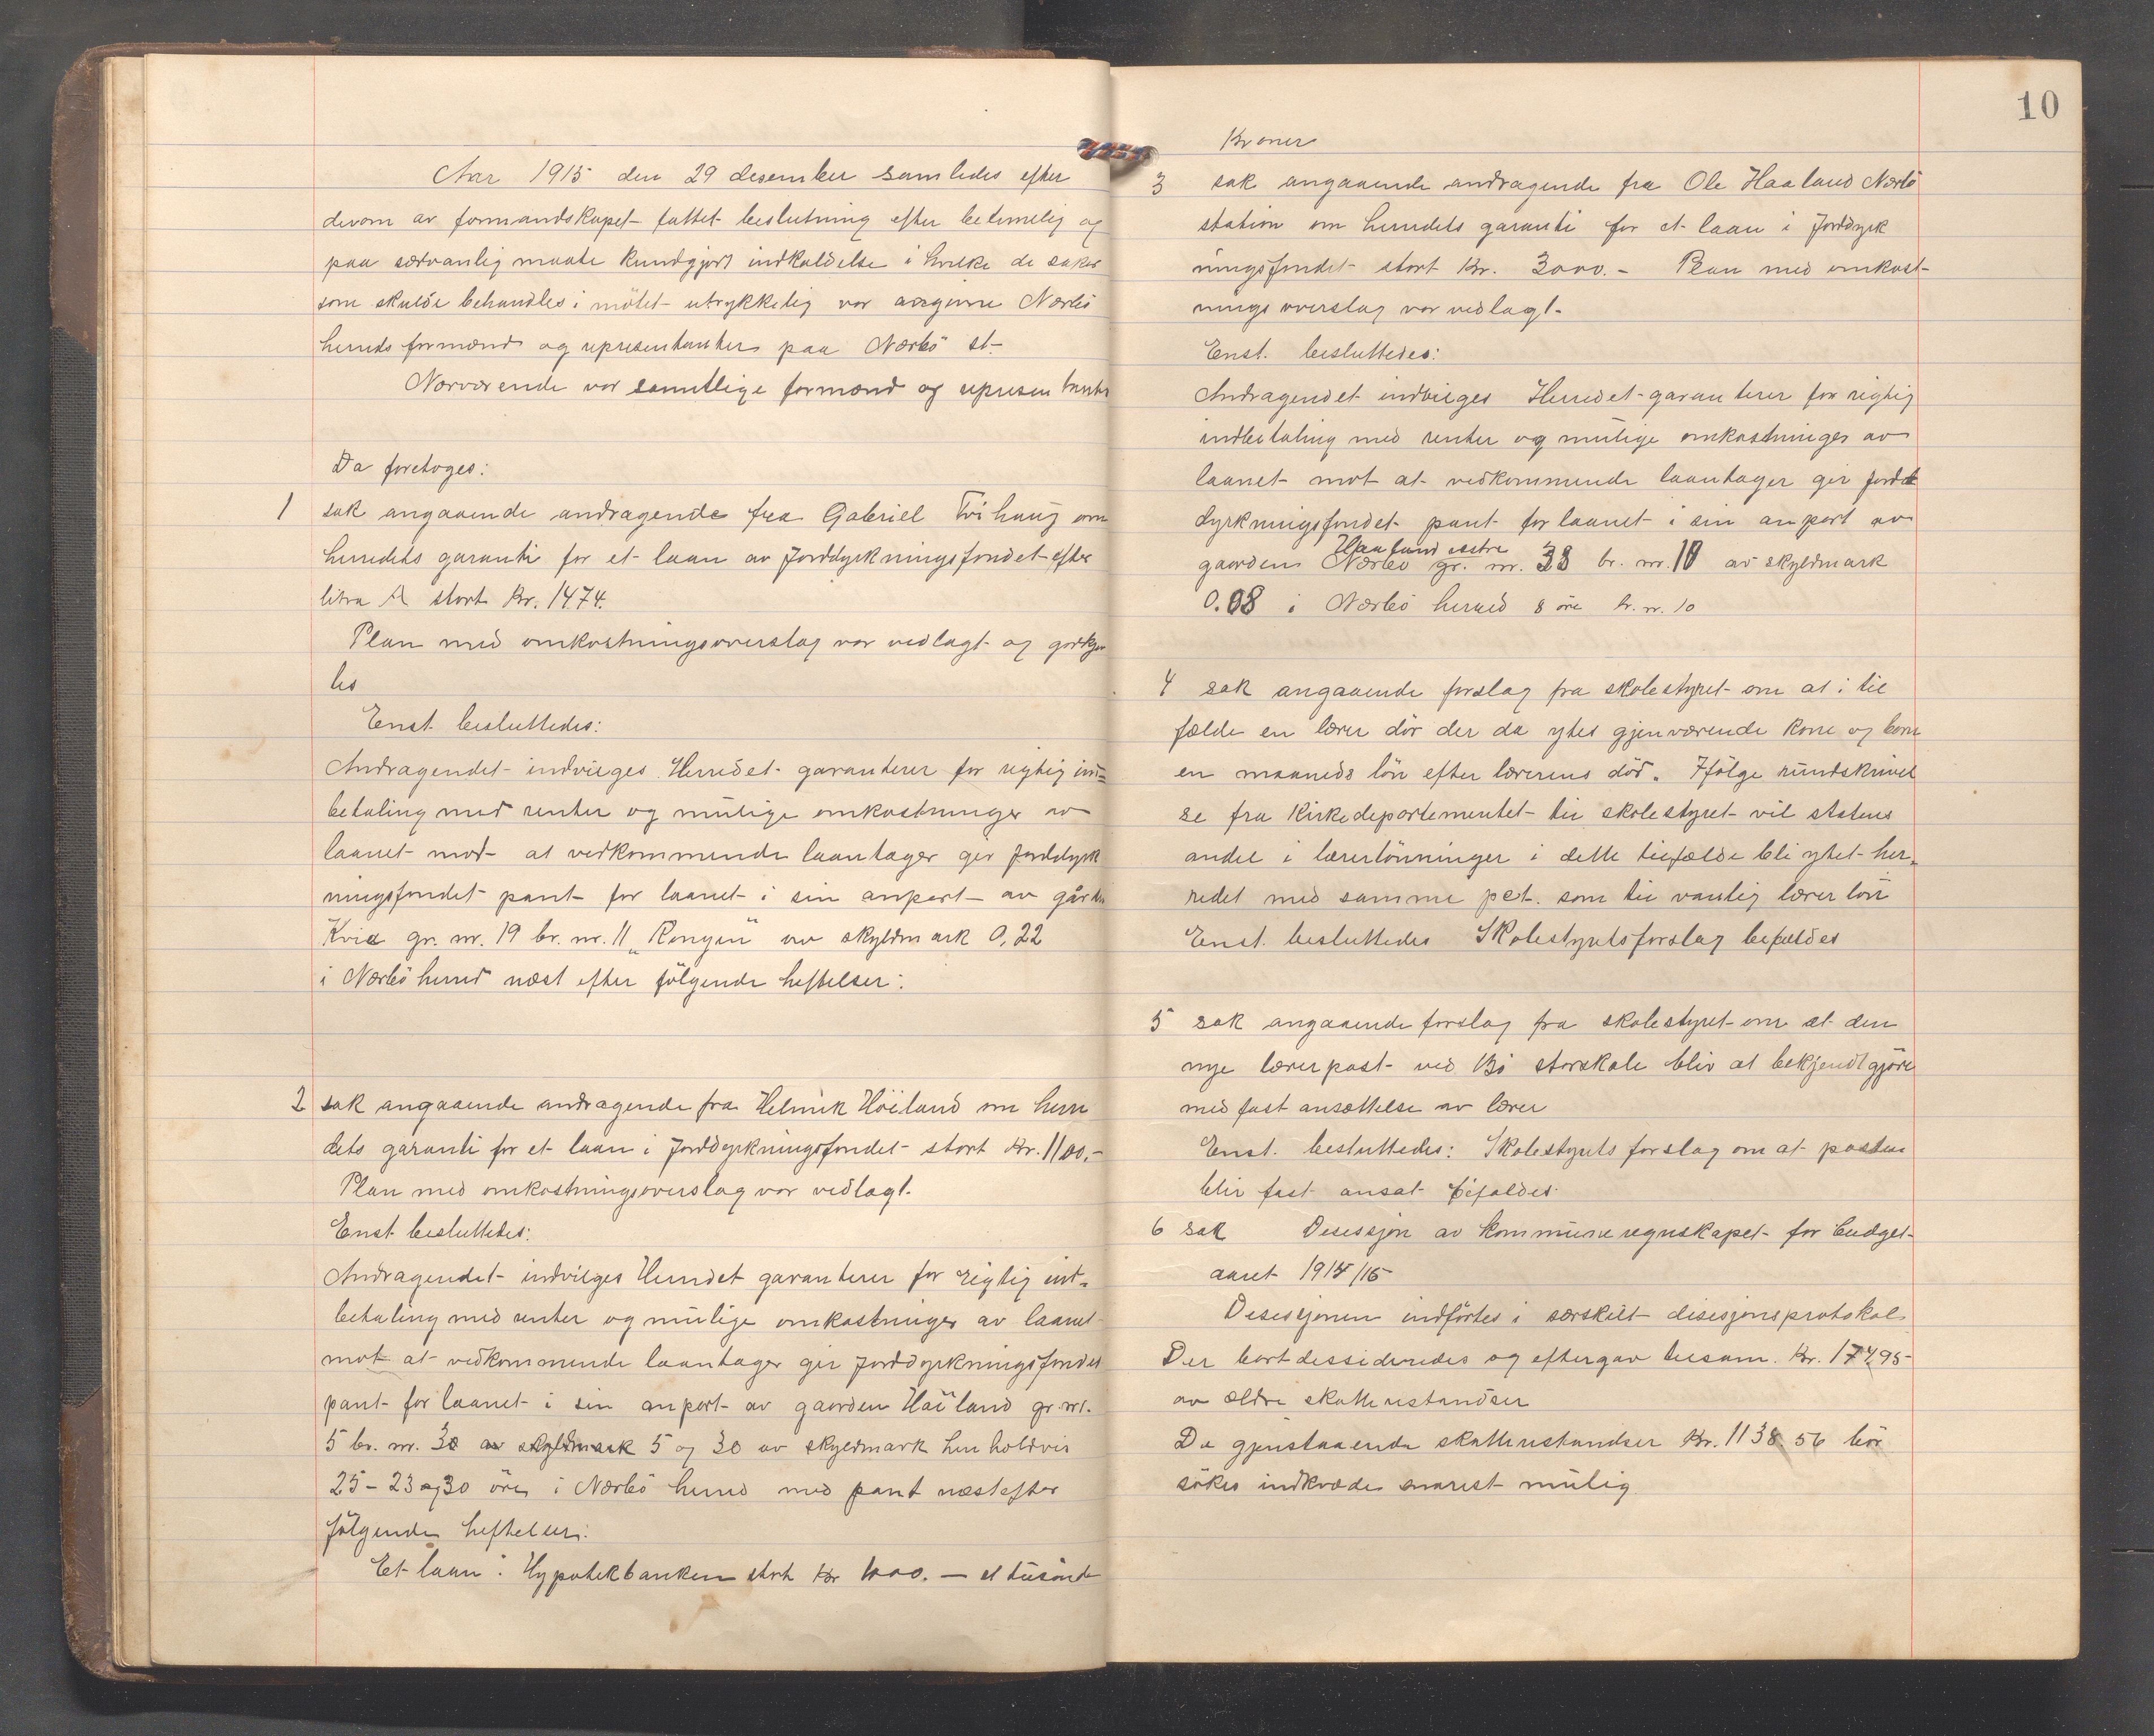 Aar 1915 den 29 desember samledes efter
derom av formandskapet fattet beslutning efter betimelig og
paa sedvanlig maate kundgjort indkaldelse i hvilke de saker
som skulde behandles i mötet utrykkelig var angivne Nærbö
herreds formænd og representanter paa Nærbö st.
Nærværende var samtlige formænd og represen tanter
Da foretoges:
1 sak angaaende andragende fra Gabriel Tvihaug om
herredets garanti for et laan av Jorddyrkningsfondet efter
litra A stort Kr. 1474.
Plan med omkostningsoverslag var vedlagt og godkjen
tes
Enst. besluttedes:
Andragendet indvilges Herredet garanterer for rigtig ind=
betaling med renter og mulige omkostninger av
laanet mod at vedkommende laantager gir Jorddyrk
ningsfondet pant for laanet i sin anpart av gården
Kvia gr. nr. 19 br. nr. 11 „Rongen" av skyldmark 0,22
i Nærbö herred næst efter fölgende heftelser:
2 sak angaaende andragende fra Helmik Höiland om herre
dets garanti for et laan i Jorddyrkningsfondet stort Kr. 1100.-
Plan med omkostningsoverslag var vedlagt.
Enst besluttedes:
Andragendet indvilges Herredet garanterer for rigtig ind=
betaling med renter og mulige omkostninger av laanet
mot at vedkommende laantager gir Jorddyrkningsfondet
pant for laanet i sin anpart av gaarden Höiland gr. nr.
5 br. nr. 30 av skyldmark 5 og 30 av skyldmark hen holdvis
25 - 23 og 30 öre i Nærbö herred med pant næst efter
fölgende heftelser:
Et laan i Hypotekbanken stort Kr 1000. — et tusinde
10
Kroner
3 sak angaaende andragende fra Ole Haaland Nærbö
station om herredets garanti for et laan i Jorddyrk
ningsfondet stort Kr. 3000.- Plan med omkost-
nings overslag var vedlagt.
Enst. besluttedes:
Andragendet indvilges Herredet garan terer for rigtig
indbetaling med renter og mulige omkostninger av
laanet mot at vedkommende laantager gir jord
dyrkningsfondet pant for laanet i sin anpart av
Haaland vestre
gaarden Nærbö gr. nr. 38 br. nr. 10 av skyldmark
0.08 i Nærbö herred 8 öre br. nr. 10
4 sak angaaende forslag fra skolestyret om at i til
fælde en lærer dör der da ytes gjenværende kone og barn
en maaneds lön efter lærerens död. Ifölge rundskrivel
se fra Kirkedepartementet til skolestyret vil statens
andel i lærerlönninger i dette tilfælde bli ytet her=
redet med samme pct. som til vanlig lærer lön
Enst. besluttedes Skolestyretsforslag bifaldes
5 sak angaaende forslag fra skolestyret om at den
nye lærerpost ved Bö storskole blir at bekjendtgjöre
med fast ansættelse av lærer
Enst. besluttedes: Skolestyrets forslag om at posten
blir fast ansat bifaldes
6 sak Desessjon av Kommuneregnskapet for budget-
aaret 1914/15
Desessjonen indförtes i særskilt disisjonsprotokol
Der bort dessideredes og eftergav tilsam. Kr. 174,95-
av ældre skatterestandser
De gjenstaaende skatterestandser Kr. 1138.56 bör
sökes indkrævde snarest mulig